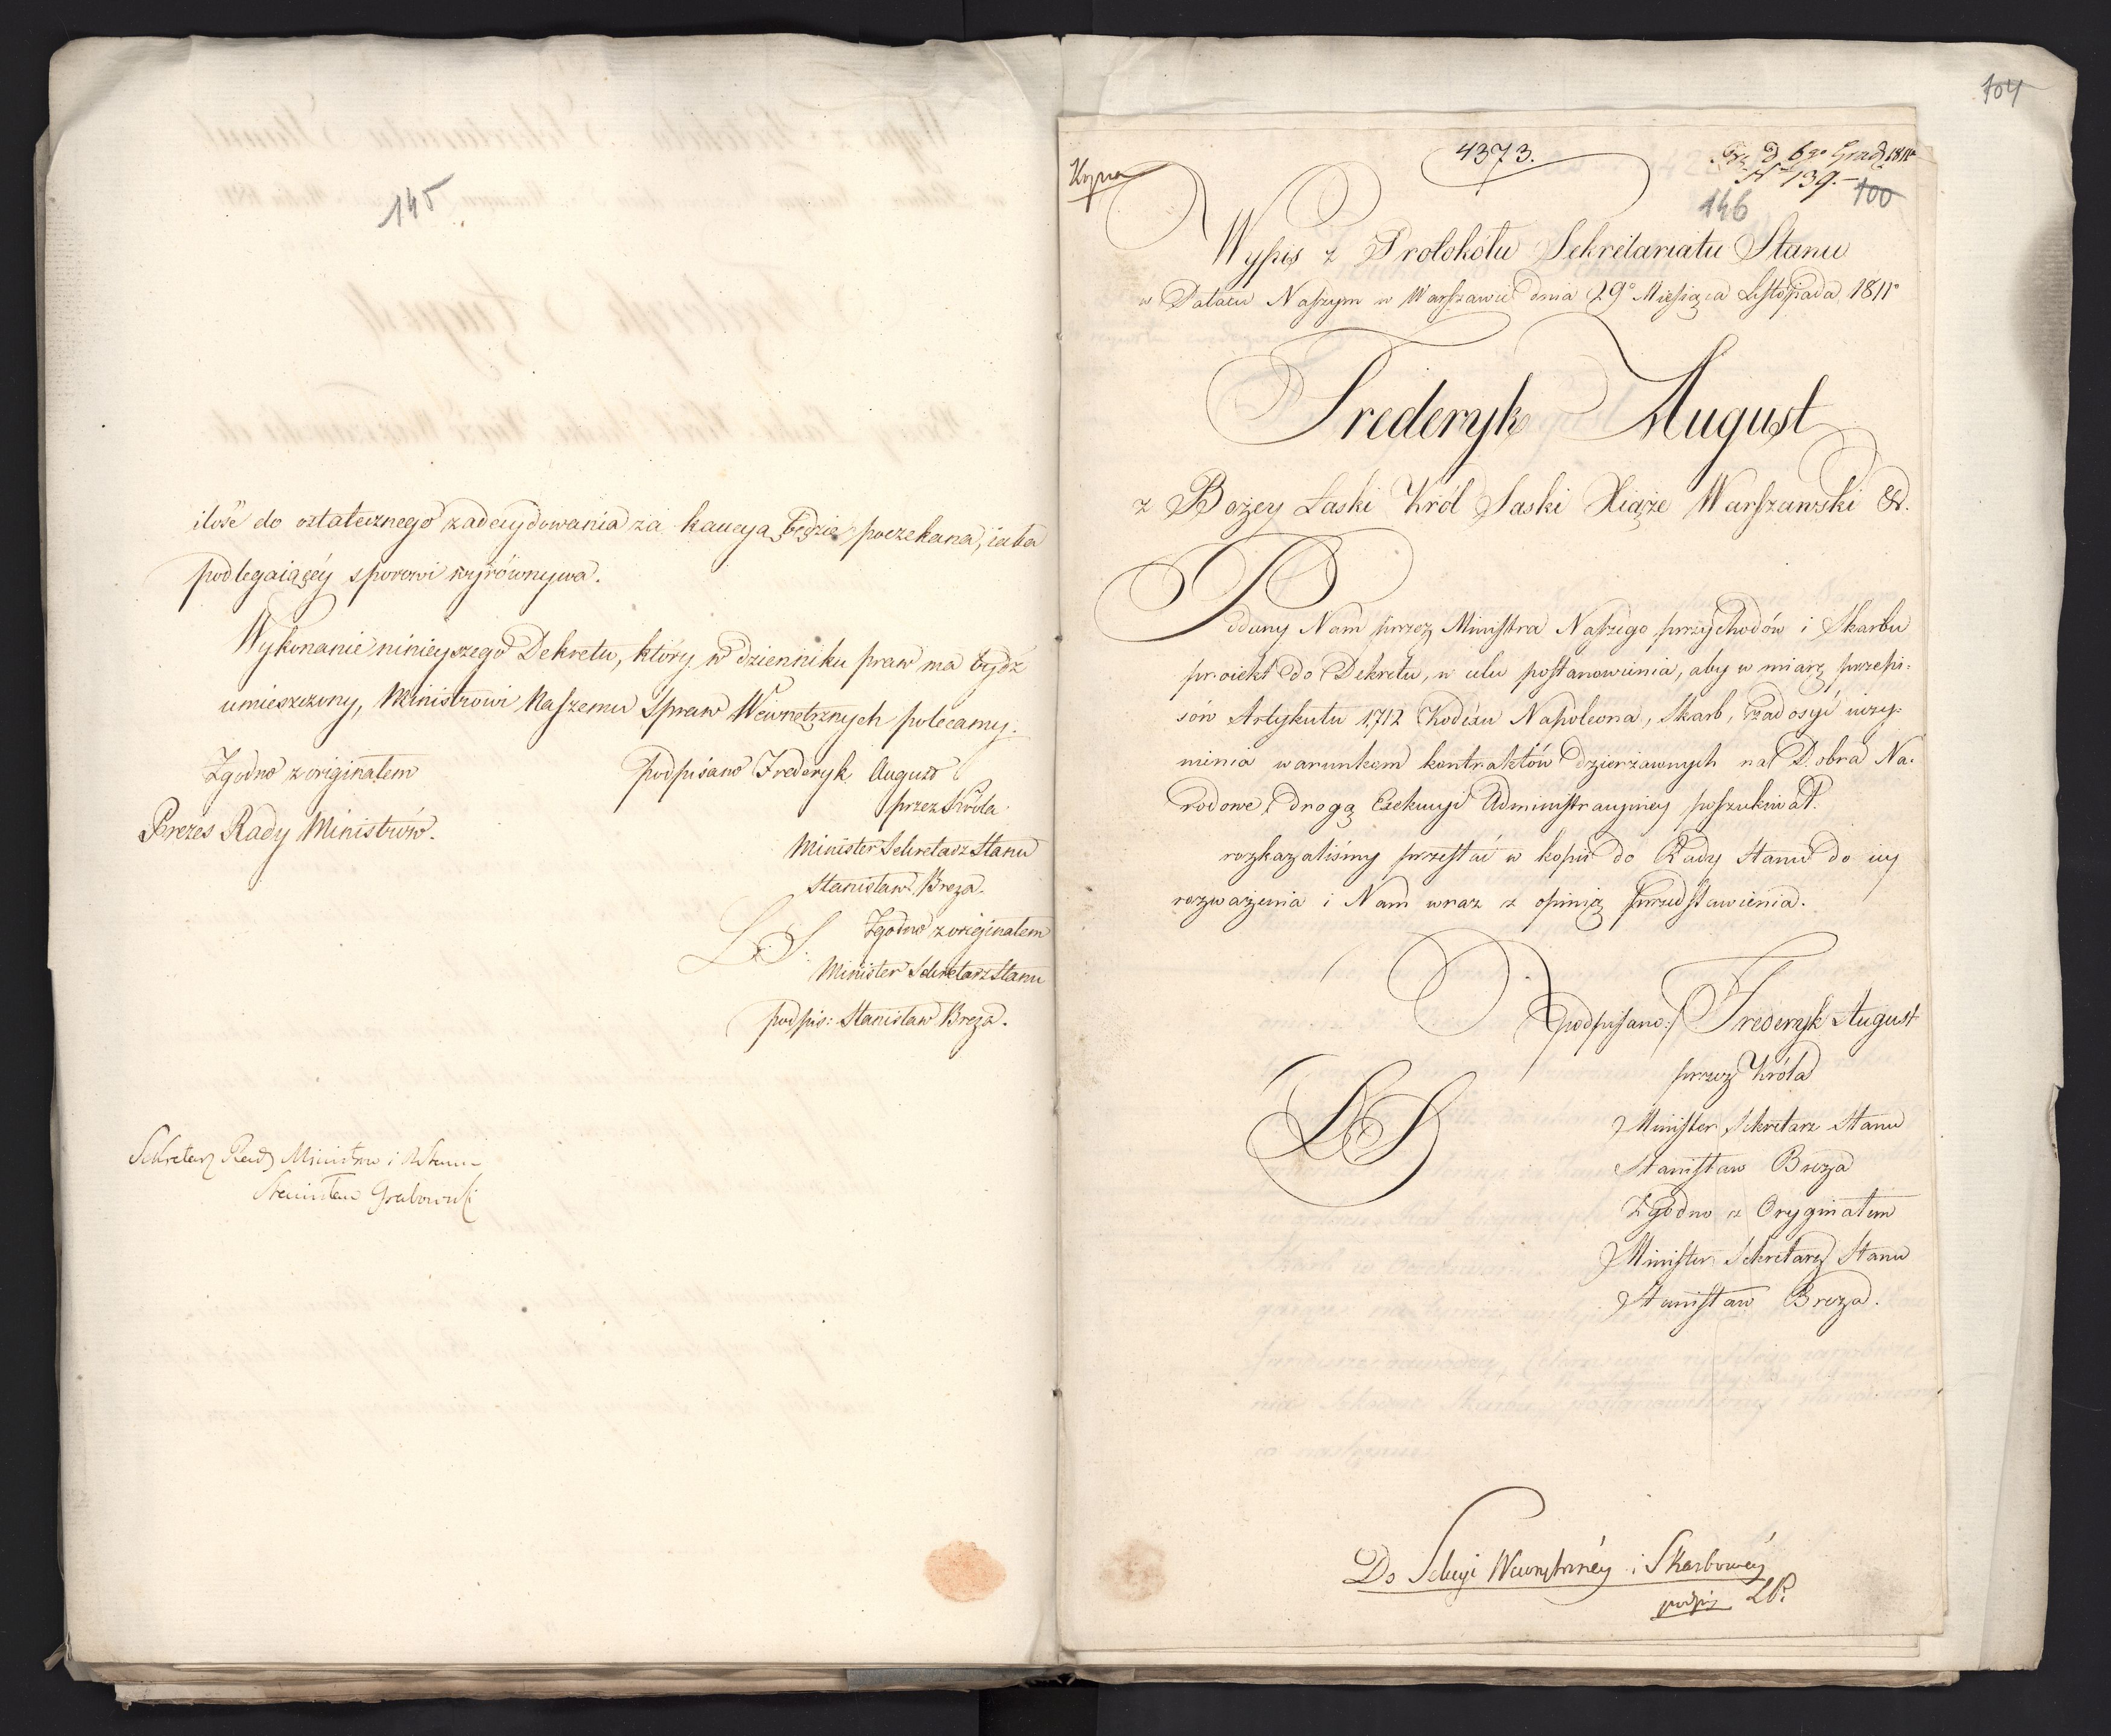 145
ilość do ostatecznego zadecydowania za kaucyą będzie poczekana, iaka
podlegaiącéy sporowi wyrównywa.
Wykonanie ninieyszego Dekretu, który w dzienniku praw ma bydź
umieszczony, Ministrowi Naszemu Spraw Wewnętrznych polecamy.
Zgodno z originałem
Prezes Rady Ministrów.
podpisano Frederyk August
przez Króla
Minister Sekretarz Stanu
Stanisław Breza.
L. S.
Zgodno z originałem
Minister Sekretarz Stanu
podpis: Stanisław Breza.
Sekretarz Rady Ministrów i Stanu
Stanisław Grabowski
104
Kopia
4373.
d. 6go Grud. 1811
N 139.
146
100
Wypis z Protokółu Sekretariatu Stanu
w Pałacu Naszym w Warszawie dnia 29o Miesiąca Listopada 1811o
Frederyk August
z Bożey Łaski Król Saski Xiąże Warszawski &.
Oddany Nam przez Ministra Naszego przychodów i Skarbu
proiekt do Dekretu, w celu postanowienia, aby w miarę przepi-
sów Artykułu 1712 Kodexu Napoleona, Skarb, zadosyć uczy-
nienia warunkom kontraktów dzierżawnych na Dobra Na-
rodowe, drogą Exekucyi Administracyiney poszukiwał.
rozkazaliśmy przesłać w kopii do Rady Stanu do iey
rozważenia i Nam wraz z opinią przedstawienia.
podpisano:/ Frederyk August
przez Króla
L S
Minister Sekretarz Stanu
Stanisław Breza
Zgodno z Oryginałem
Minister Sekretarz Stanu
Stanisław Breza.
Do Sekcyi Wewnętrznéy i Skarbowéy
podpis